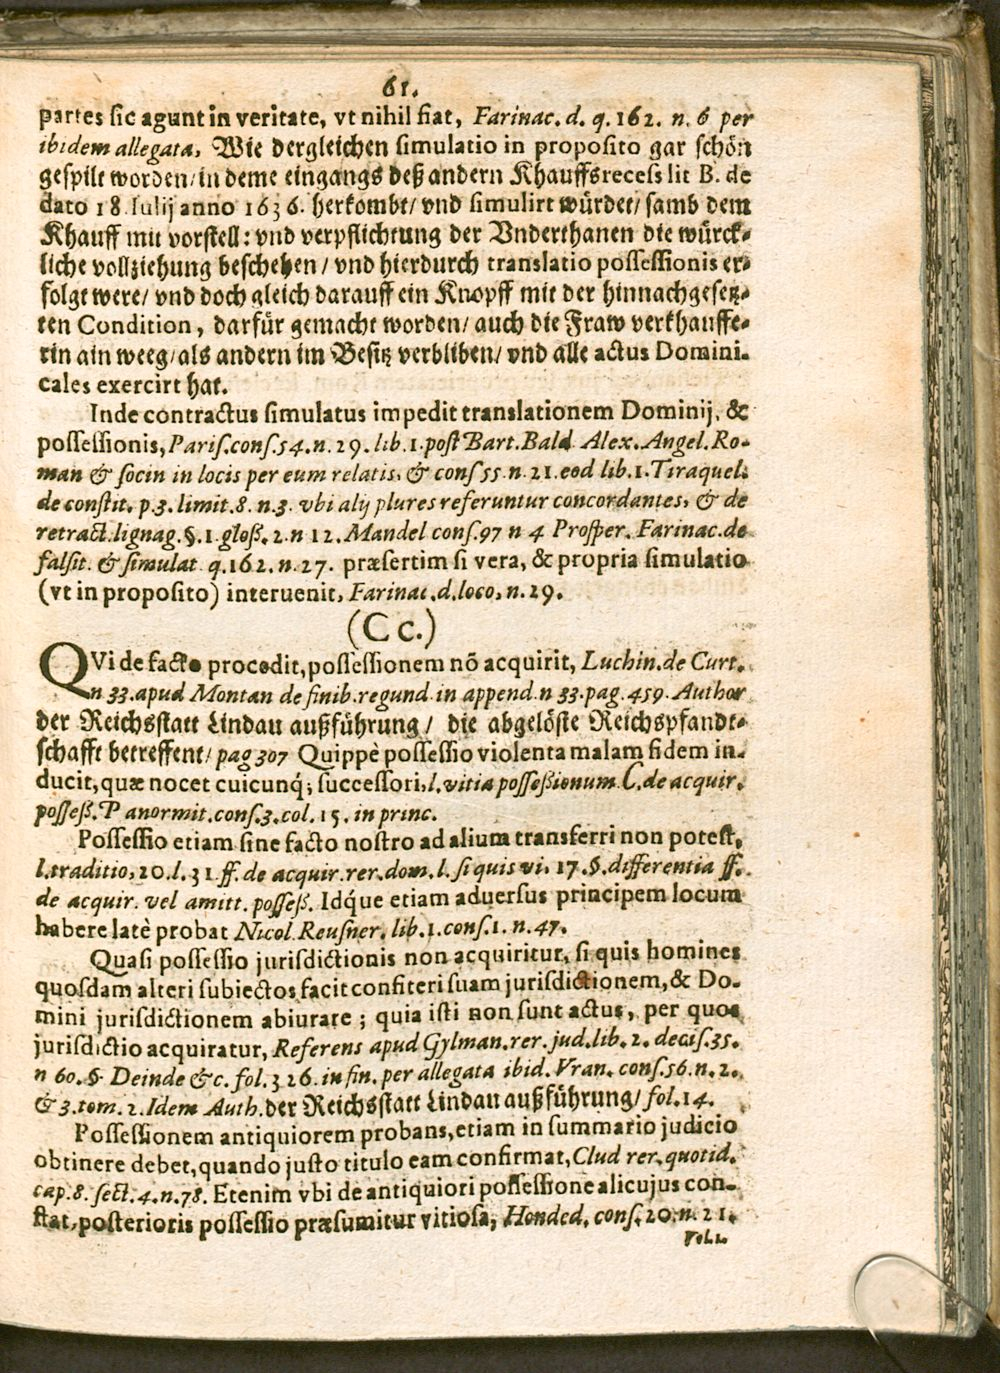 61.
partes sic agunt in veritate, vt nihil fiat, Farinac. d. q. 162. n. 6 per
ibidem allegata, Wie dergleichen simulatio in proposito gar schön
gespilt worden/ in deme eingangs deß andern Khauffsrecess lit B. de
dato 18 Iulij anno 1636. herkombt/ vnd simulirt würdet/ samb dem
Khauff mit vorstell: vnd verpflichtung der Vnderthanen die würck-
liche vollziehung beschehen/ vnd hierdurch translatio possessionis er-
folgt were/ vnd doch gleich darauff ein Knopff mit der hinnachgesetz-
ten Condition, darfür gemacht worden/ auch die Fraw verkhauffe-
rin ain weeg/ als andern im Besitz verbliben/ vnd alle actus Domini-
cales exercirt hat.
Inde contractus simulatus impedit translationem Dominij, &
possessionis, Paris. cons. 54. n. 29. lib. 1. post Bart. Bald Alex. Angel. Ro-
man & socin in locis per eum relatis, & cons 55. n. 21. eod lib. 1. Tiraquel.
de constit. p. 3. limit. 8. n. 3. vbi alij plures referuntur concordantes, & de
retract. lignag. §. 1. gloß. 2. n 12. Mandel cons. 97 n 4 Prosper. Farinac. de
falsit. & simulat q. 162. n. 27. præsertim si vera, & propria simulatio
(vt in proposito) interuenit, Farinac. d. loco, n. 29.
(Cc.)
QVi de facto procedit, possessionem nõ acquirit, Luchin. de Curt.
n 33. apud Montan de finib. regund. in append. n 33. pag. 459. Author
der Reichsstatt Lindau außführung/ die abgelöste Reichspfandt-
schafft betreffent/ pag 307 Quippè possessio violenta malam fidem in-
ducit, quæ nocet cuicunq́; successori, l. vitia posseßionum C. de acquir.
posseß. Panormit. cons. 3. col. 15. in princ.
Possessio etiam sine facto nostro ad alium transferri non potest,
l. traditio, 20. l. 31. ff. de acquir. rer. dom. l. si quis vi, 17. §. differentia ff.
de acquir. vel amitt. posseß. Idq́ue etiam aduersus principem locum
habere latè probat Nicol Reusner. lib. 1. cons. 1. n. 47.
Quasi possessio jurisdictionis non acquiritur, si quis homines
quosdam alteri subiectos facit confiteri suam jurisdictionem, & Do-
mini jurisdictionem abiurare; quia isti non sunt actus, per quos
jurisdictio acquiratur, Referens apud Gylman. rer. jud. lib. 2. decis. 35.
n 60. § Deinde &c. fol. 326. in fin. per allegata ibid. Vran. cons. 56. n. 2.
& 3. tom. 2. Idem Auth. der Reichsstatt Lindau außführung/ fol. 14.
Possessionem antiquiorem probans, etiam in summario judicio
obtinere debet, quando justo titulo eam confirmat, Clud rer. quotid.
cap. 8. sect. 4. n. 78. Etenim vbi de antiquiori possessione alicujus con-
stat, posterioris possessio præsumitur vitiosa, Honded. cons. 20. n. 21.
Vol. 1.